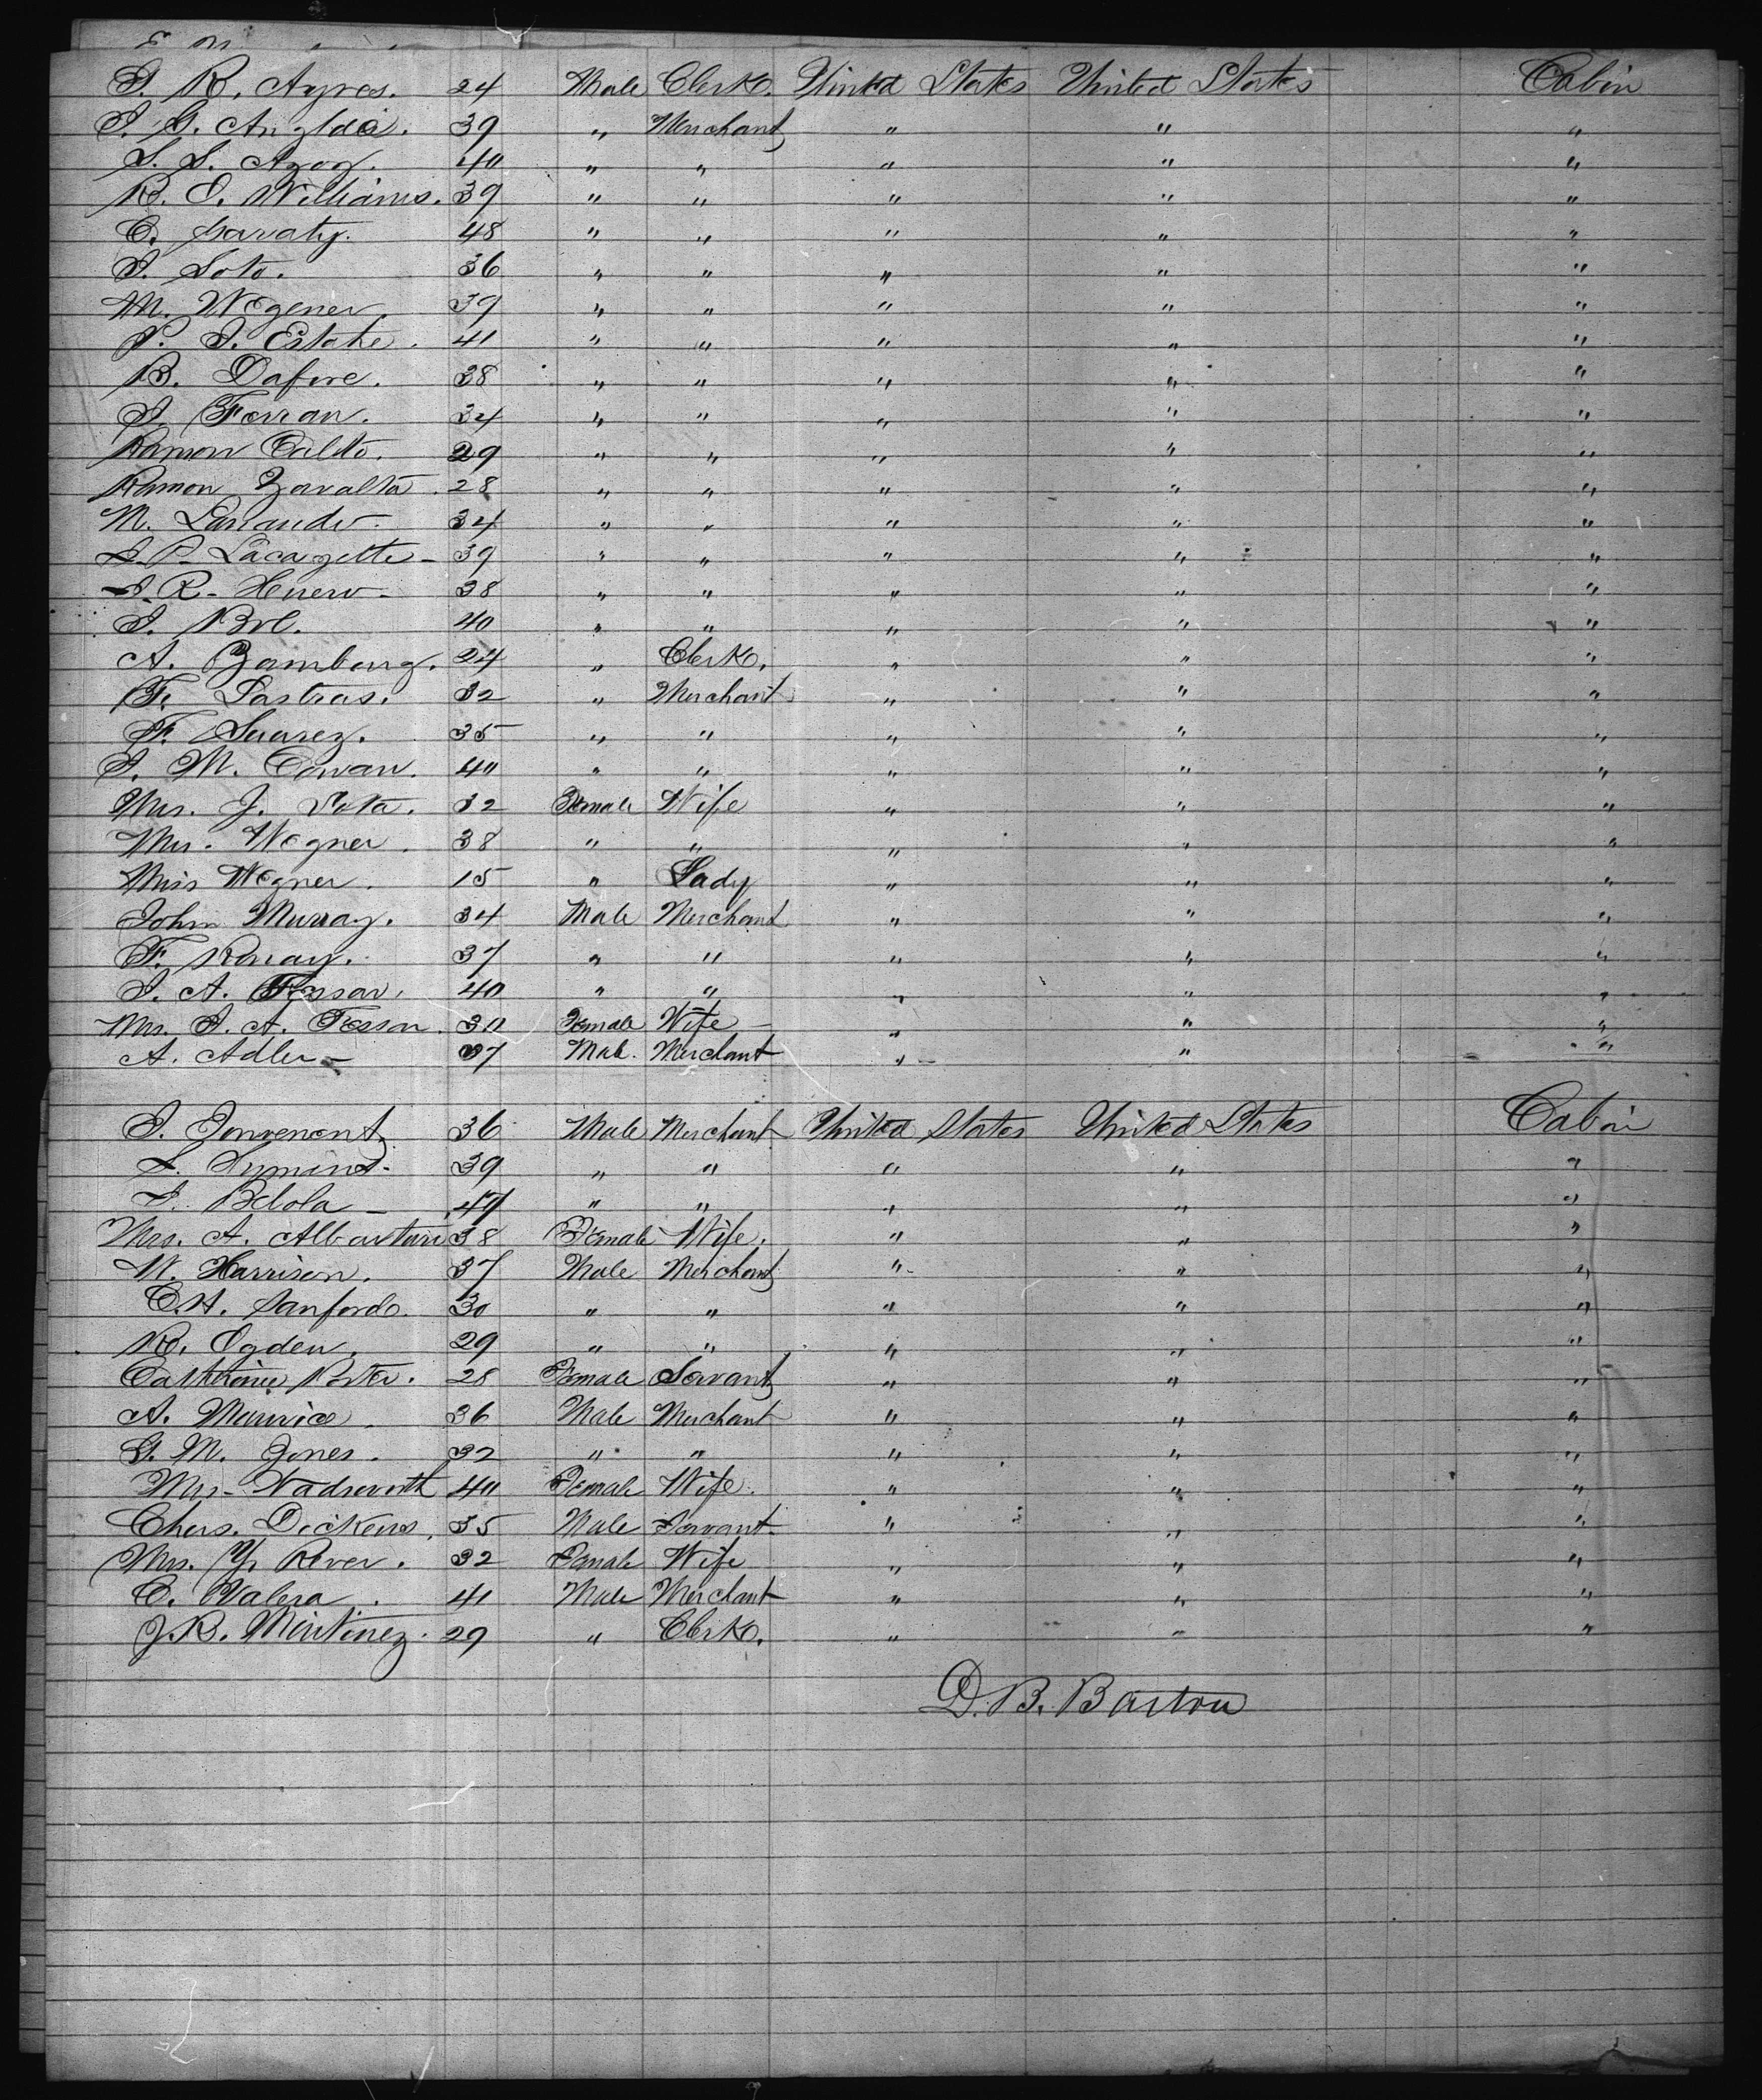 J. R. Ayres. 24 Male Clerk. United States United States Cabin
J. G. Anglda. 39 " Merchant " " "
S. S. Azog. 40 " " " " "
R. S. Williams. 39 " " " " "
C. Garaty. 48 " " " " "
J. Soto. 36 " " " " "
M. Wegener. 39 " " " " "
P. J. Estake. 41 " " " " "
B. Dafore. 38 " " " " "
J. Ferran. 34 " " " " "
Ramon Calito. 29 " " " " "
Ramon Zavalta. 28 " " " " "
M. 34 " " " " "
J. P. Lacazette - 39 " " " " "
J. R. Herrero - 38 " " " " "
J. Bol. 40 " " " " "
A. Zamburg. 24 " Clerk. " " "
F. Lastras. 32 " Merchant " " "
F. Suarez. 35 " " " " "
J. M. Cowan. 40 " " " " "
Mrs. J. Sota. 32 Female Wife " " "
Mrs. Wegner. 38 " " " " "
Miss Wegner. 15 " Lady " " "
John Murray. 34 Male Merchant " " "
F. Rouay. 37 " " " " "
J. A. Fessar. 40 " " " " "
Mrs. J. A. Fessar. 30 Female Wife " " "
A. Adler - 37 Male. Merchant " " "
J. Jouvenant 36 Male Merchant United States United States Cabin
L. 39 " " " " "
J. Bebola - 47 " " " " "
Mrs. A. Albarturi 38 Female Wife. " " "
W. Harrison. 37 Male Merchant " " "
C. H. Sanford. 30 " " " " "
R. Ogden. 29 " " " " "
Catherine Porter. 28 Female Servant " " "
A. Maurice. 36 Male Merchant " " "
G. M. Jones. 32 " " " " "
Mrs - Wadsworth 40 Female Wife. " " "
Chas. Dickens. 35 Male Servant. " " "
Mrs. Y. River. 32 Female Wife " " "
C. Valera. 41 Male Merchant " " "
J. R. Martinez. 29 " Clerk. " " "
D. B. Barton